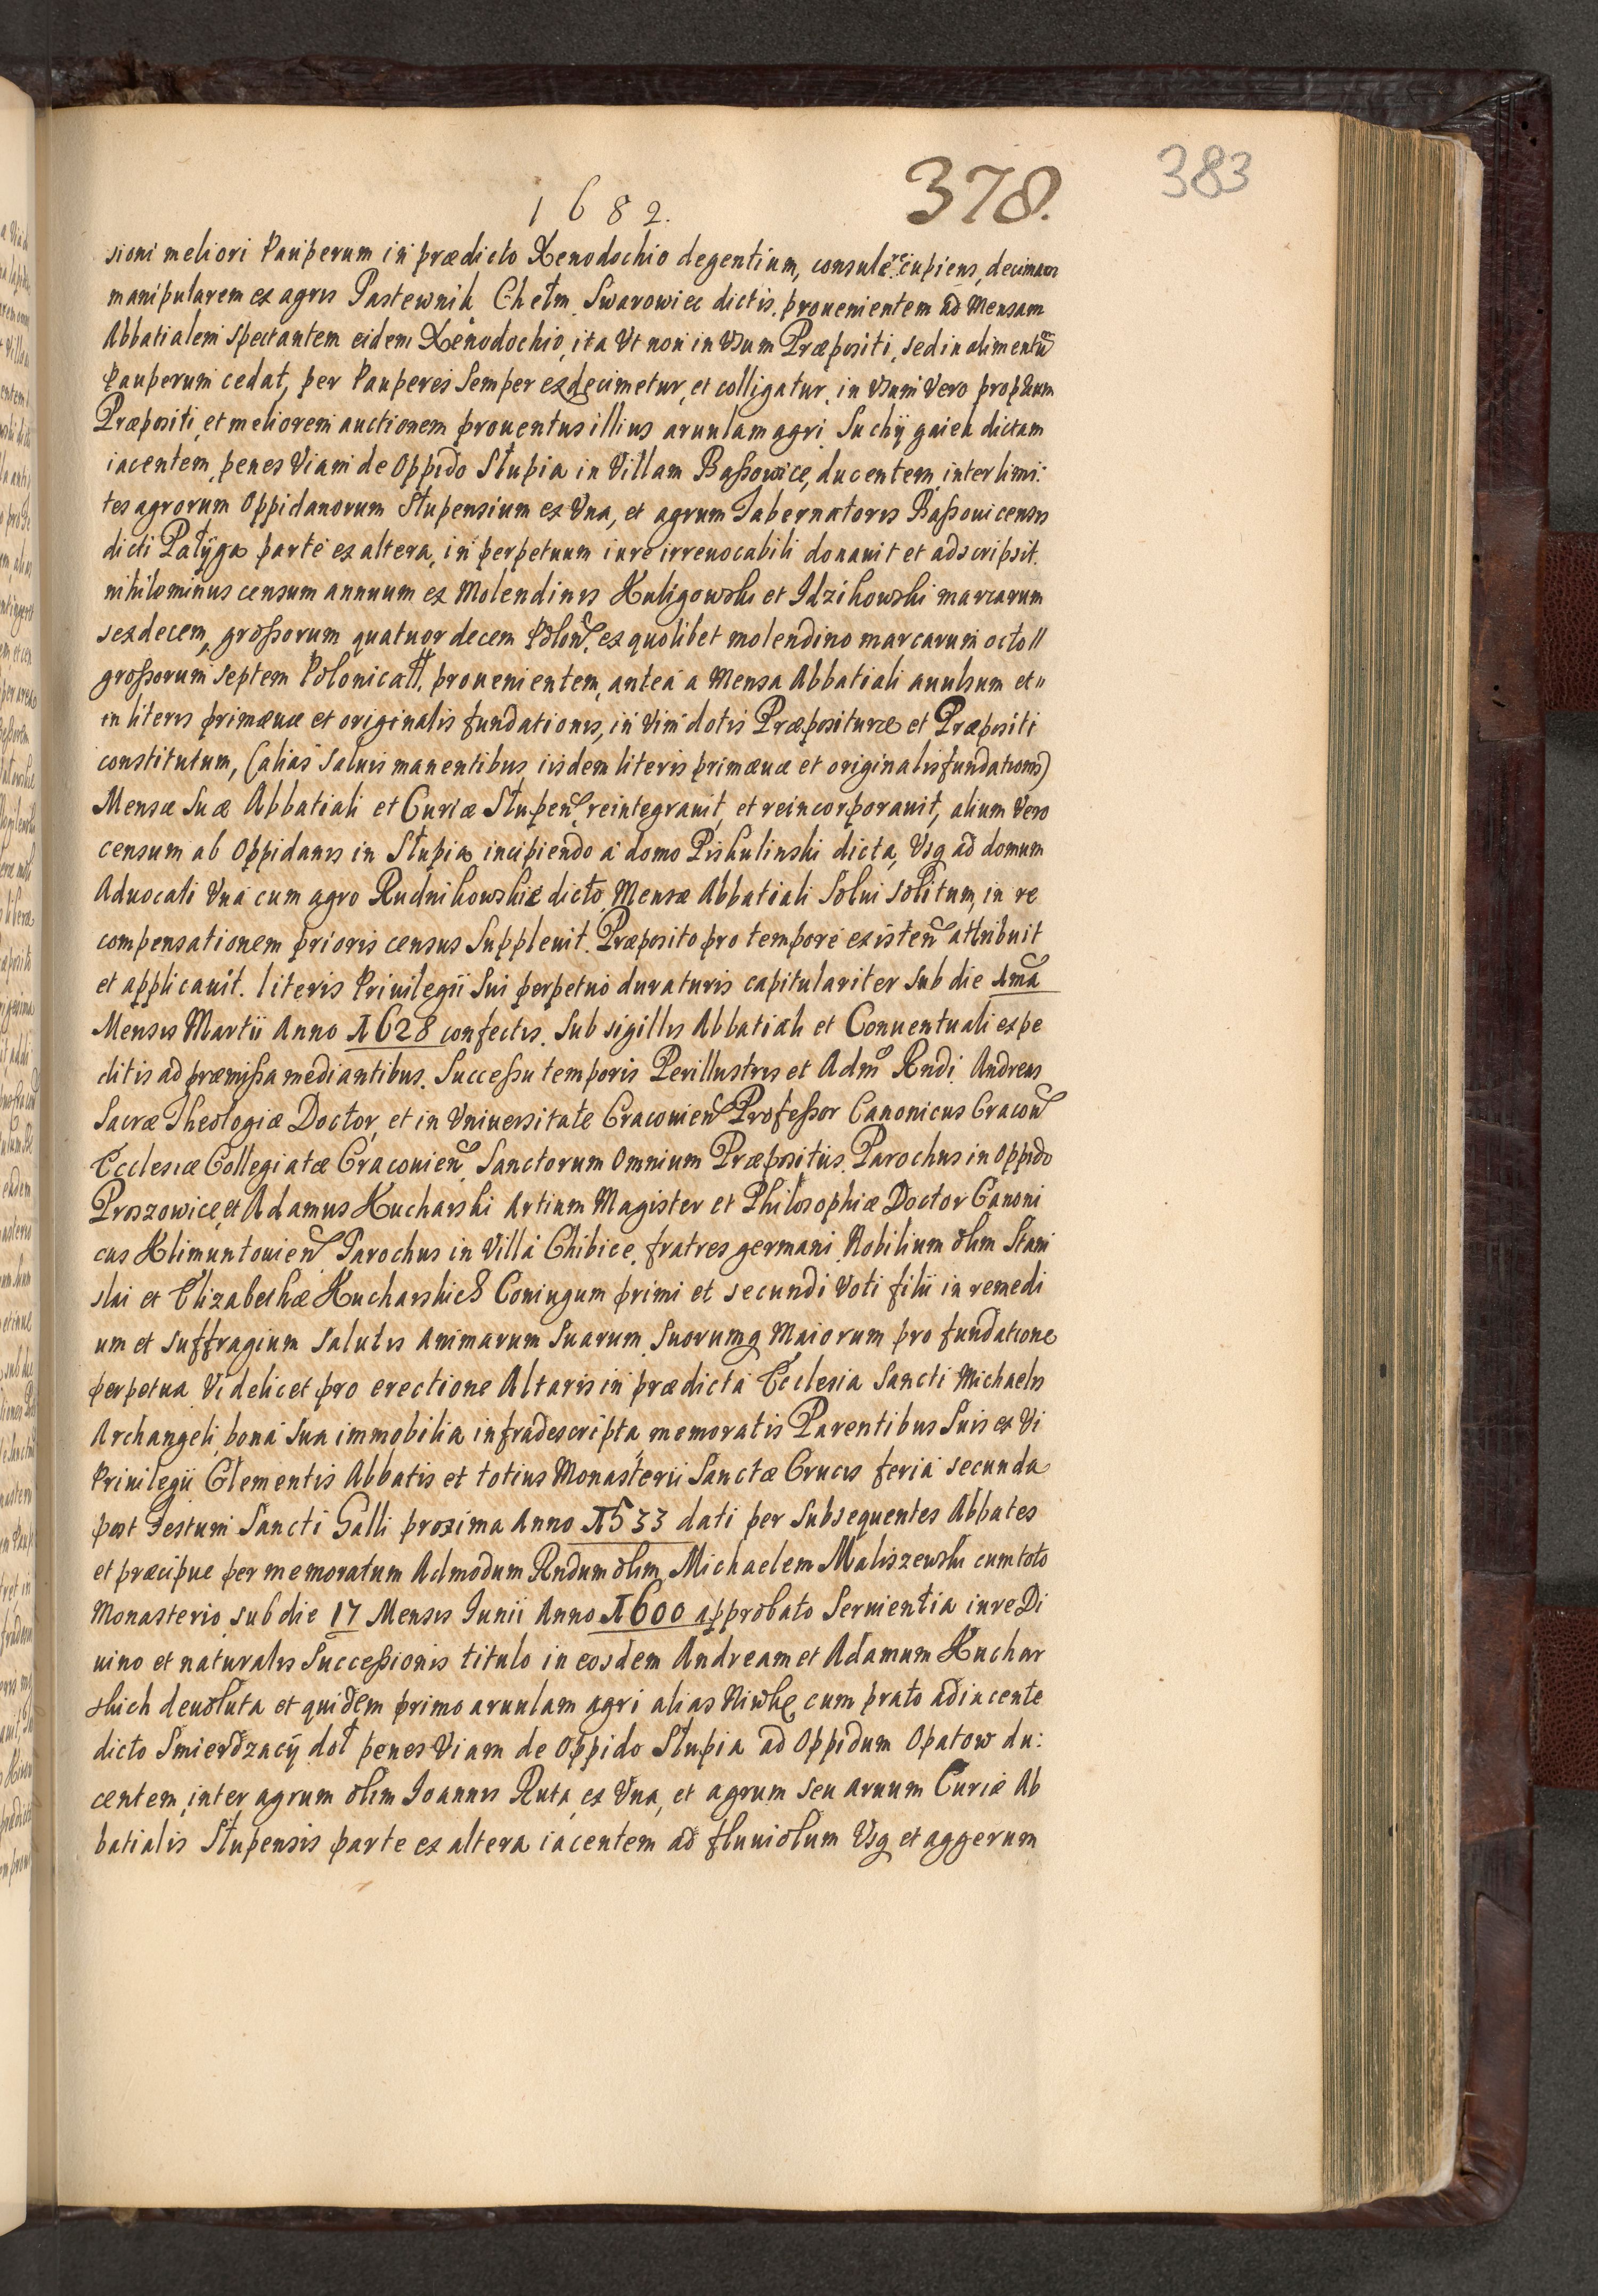 1682.
378.
383
sioni meliori Pauperum in prædicto Xenodochio degentium, consulere cupiens, decimam
manipularem ex agris Pastewnik Chełm Swarowiec dictis, prouenientem ad Mensam
Abbatialem spectantem eidem Xenodochio, ita Vt non in Vsum Præpositi, sed in alimentũ
Pauperum cedat, per Pauperes Semper exdecimetur, et colligatur, in Vsum Vero proprium
Præpositi, et meliorem auctionem prouentus illius aruulam agri Suchÿ gaiek dictam
iacentem, penes Viam de Oppido Słupia in Villam Baßowice, ducentem, inter limi:
tes agrorum Oppidanorum Słupensium ex Vna, et agrum Tabernatoris Baßouicensis
dicti Pałÿga parte ex altera, in perpetuum iure irreuocabili donauit et adscripsit.
nihilominus censum annuum ex Molendinis Kuligowski et Idzikowski marcarum
sexdecem, großorum quatuor decem Polon. ex quolibet molendino marcarum octo //
großorum septem Polonicall. prouenientem, antea a Mensa Abbatiali auulsum et "
in literis primæuæ et originalis fundationis, in Vim dotis Præposituræ et Præpositi
constitutum, (alias Saluis manentibus iisdem literis primæuæ et originalis fundationis)
Mensæ Suæ Abbatiali et Curiæ Słupen. reintegrauit, et reincorporauit, alium Vero
censum ab Oppidanis in Słupia incipiendo a domo Piskulinski dicta, Vsq ad domum
Aduocati Vna cum agro Rudnikowskie dicto, Mensæ Abbatiali Solui Solitum, in re
compensationem prioris census Suppleuit. Præposito pro tempore existen attribuit
et applicauit. literis Priuilegii Sui perpetuo duraturis capitulariter Sub die 1ma
Mensis Martii Anno 1628 confectis. Sub sigillis Abbatiali et Conuentuali expe
ditis ad præmißa mediantibus. Succeßu temporis Perillustris et Adm Rndi. Andreas
Sacræ Theologiæ Doctor, et in Vniuersitate Cracouien Profeßor Canonicus Cracon
Ecclesiæ Collegiatæ Cracouien, Sanctorum Omnium Præpositus. Parochus in Oppido
Proszowice, et Adamus Kucharski Artium Magister et Philosophiæ Doctor Canoni
cus Klimuntouien Parochus in Villa Chibice, fratres germani Nobilium olim Stani
slai et Elizabethæ Kucharskich Coniugum primi et secundi Voti filii in remedi
um et suffragium Salutis Animarum Suarum Suorumq Maiorum pro fundatione
perpetua Videlicet pro erectione Altaris in prædicta Ecclesia Sancti Michaelis
Archangeli, bona Sua immobilia infradescripta, memoratis Parentibus Suis ex Vi
Priuilegii Clementis Abbatis et totius Monasterii Sanctæ Crucis feria secunda
post Festum Sancti Galli proxima Anno 1533 dati per Subsequentes Abbates
et præcipue per memoratum Admodum Rndum olim Michaelem Maliszewski cum toto
Monasterio, Sub die 17 Mensis Iunii Anno 1600 approbato Seruientia iure Di
uino et naturalis Succeßionis titulo in eosdem Andream et Adamum Kuchar
skich deuoluta et quidem primo aruulam agri alias Niwkę cum prato adiacente
dicto Smierdzacÿ doł penes Viam de Oppido Słupia ad Oppidum Opatow du:
centem, inter agrum olim Ioannis Ruta, ex Vna, et agrum seu aruum Curiæ Ab
batialis Słupensis parte ex altera iacentem ad fluuiolum Vsq et aggerum